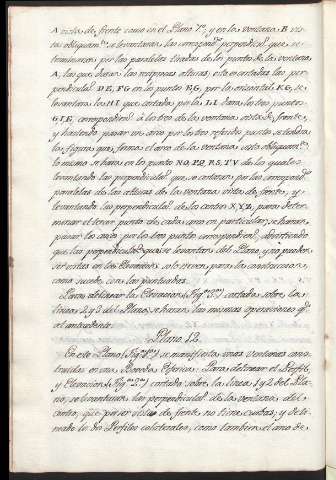 A vista de frente como en el Plano 7º, y en la ventana B vis-
ta obliquamte se levantaran las correspondtes perpendiculs que se
terminaran por las paralelas tiradas de los puntos de la ventana
A, las que daran las mismas alturas, esto es cortadas las per-
pendiculs DE, FG en los puntos E, G, por la orizontal EG, se
levantara la HI que cortada por la LI dara los tres puntos
G, I, E, correspondtes à los tres de la ventana vista de frente,
y haciendo pasar un arco por los tres referidos puntos se tendra
la figura que forma el arco de la ventana vista obliquamte:
lo mismo se hara en los puntos NO, PQ, RS, TV de los quales
levantando las perpendiculs que se cortaran por las correspondtes
paralelas de las alturas de la ventana vista de frente, y
levantando las perpendiculs de los centros X, Y, Z, para deter-
minar el tercer punto de cada arco en particular, se haran
pasar los arcos por los tres puntos correspondtes, advirtiendo
que las perpendiculs que se levantan del Plano, y no pueden
ser vistas en las Elevaciones, solo sirven para la construccion,
como sucede con las puntuadas.
Para delinear la Elevacion (Figª 3ª) cortada sobre las
lineas 4 y 3 del Plano, se haran las mismas operaciones qe
el antecedente.
Plano 12.
En este Plano (Figª 1ª) se manifiestan unas ventanas cons-
truidas en una Boveda Esferica: Para delinear el Perfil,
y Elevacion (Figª 2ª) cortado sobre la linea 1 y 2 del Pla-
no, se levantaran las perpendiculs de la ventana del
centro, que por ser vista de frente no tiene curbas; y deli-
neado los dos Perfiles colaterales, como tambien el arco de